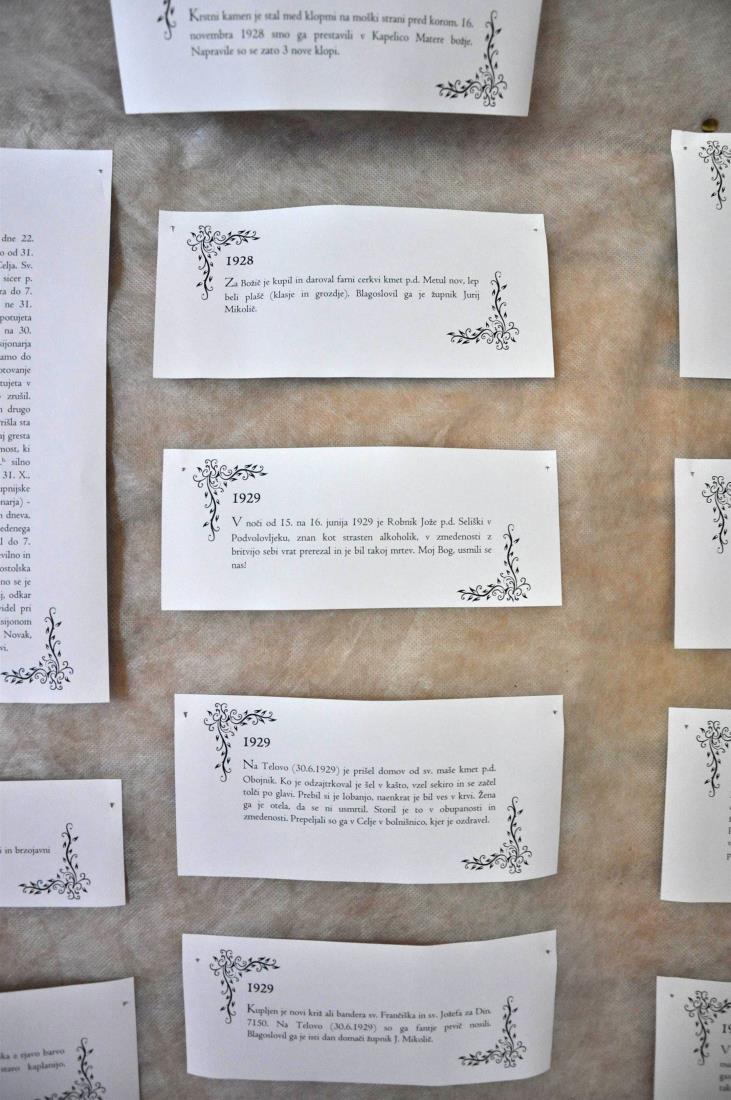 Krstni kamen je stal med klopmi na moški strani pred korom. 16.
novembra 1928 smo ga prestavili v Kapelico Matere božje.
Napravile so se zato 3 nove klopi.
1928
Za Božič je kupil in daroval farni cerkvi kmet p.d. Metul nov, lep
beli plašč (klasje in grozdje). Blagoslovil ga je župnik Jurij
Mikolič.
1929
V noči od 15. na 16. junija 1929 je Robnik Jože p.d. Seliški v
Podvolovljeku, znan kot strasten alkoholik, v zmedenosti z
britvijo sebi vrat prerezal in je bil takoj mrtev. Moj Bog, usmili se
nas!
1929
Na Telovo (30.6.1929) je prišel domov od sv. maše kmet p.d.
Obojnik. Ko je odzajtrkoval je šel v kašto, vzel sekiro in se začel
tolči po glavi. Prebil si je lobanjo, naenkrat je bil ves v krvi. Žena
ga je otela, da se ni usmrtil. Storil je to v obupanosti in
zmedenosti. Prepeljali so ga v Celje v bolnišnico, kjer je ozdravel.
1929
Kupljen je novi križ ali bandera sv. Frančiška in sv. Jožefa za Din.
7150. Na Telovo (30.6.1929) so ga fantje prvič nosili.
Blagoslovil ga je isti dan domači župnik J. Mikolič.
dne 22.
o od 31.
Celja. Sv.
sicer p.
ra do 7.
ne 31.
potujeta
na 30.
sijonarja
amo do
otovanje
tujeta v
zrušil.
drugo
rišla sta
aj gresta
nost, ki
silno
31. X.,
upnijske
onarja) -
dneva,
edenega
l do 7.
vilno in
ostolska
no se je
j, odkar
videl pri
sijonom
Novak,
vi.
i in brzojavni
ka z rjavo barvo
staro kaplanijo.